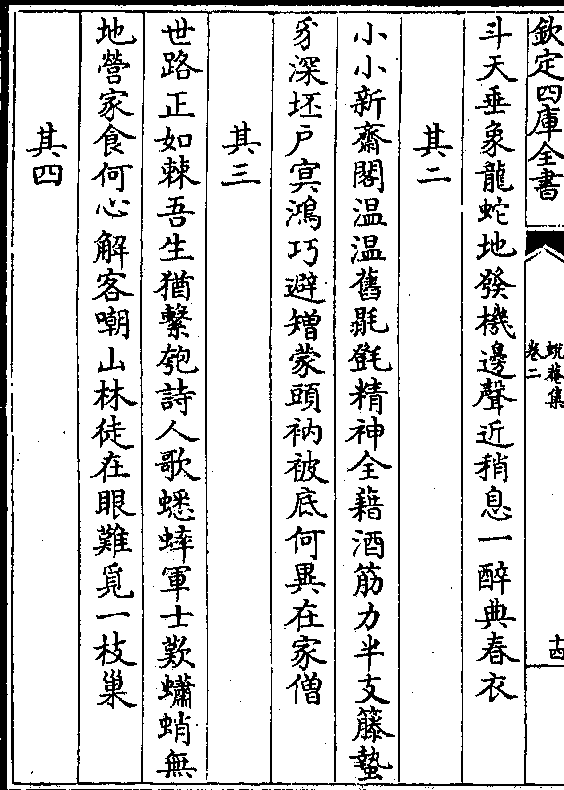 欽定四庫全書
蛻菴集
卷二
十四
斗天垂象龍蛇地發機邊聲近稍息一醉典春衣
其二
小小新齋閣温温舊毾㲪精神全藉酒筋力半支籐蟄
豸深坯戸㝠鴻巧避矰蒙頭衲被底何異在家僧
其三
世路正如棘吾生猶繫匏詩人歌蟋蟀軍士歎蠨蛸無
地營家食何心解客嘲山林徒在眼難覓一枝巢
其四